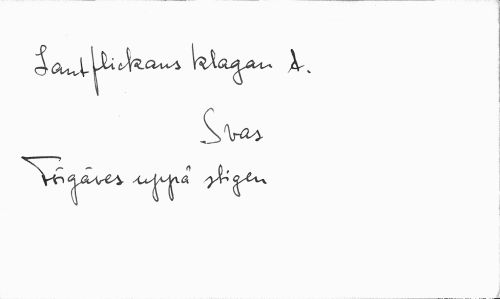 Lantflickans klagan A.
Svas
Förgäves uppå stigen